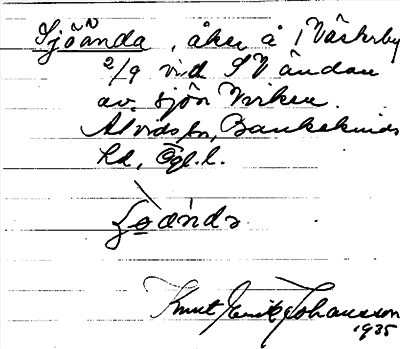 Sjöända, åker å 1 Västerby
2/9 vid SV ändan
av sjön Virken.
Atvids sn, Bankekinds
hd, Ögl. l.
Knut Erik Johansson
1935